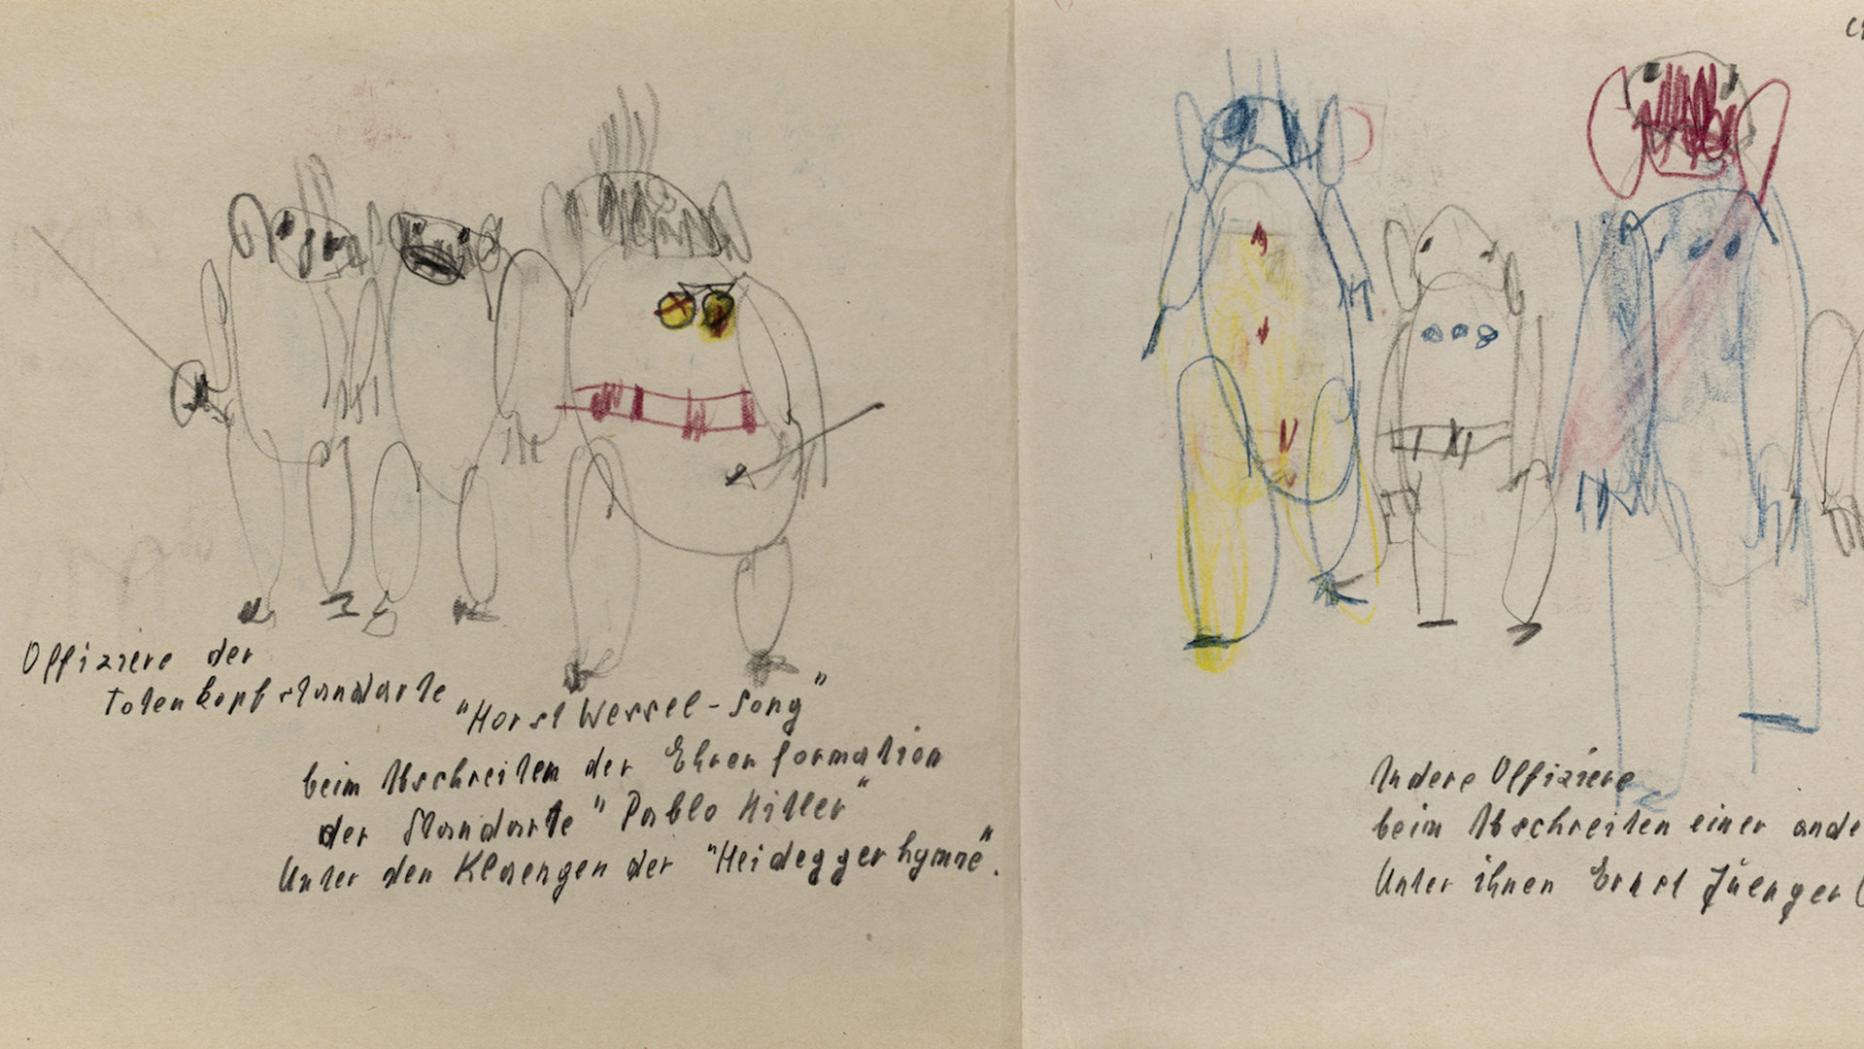 Offiziere der
Totenkopfstandarte "Horst Wessel-Song"
beim Abschreiten der Ehrenformation
der Standarte "Pablo Hitler"
Unter den Klaengen der "Heideggerhymne".
Andere Offiziere
beim Abschreiten einer ande
Unter ihnen Ernst Jüenger (